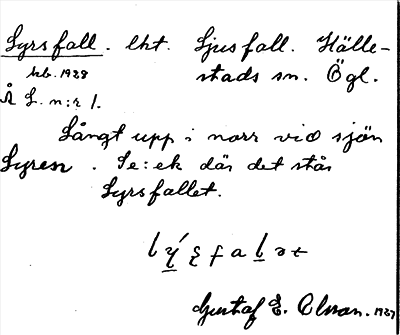 Lyrsfall. lht. Ljusfall. Hälle-
hb. 1938 stads sn. Ögl.
Å L. n:r 1.
Långt upp i norr vid sjön
Lyren. Se: ek där det står
Lyrsfallet.
Gustaf E. Olsson. 1937